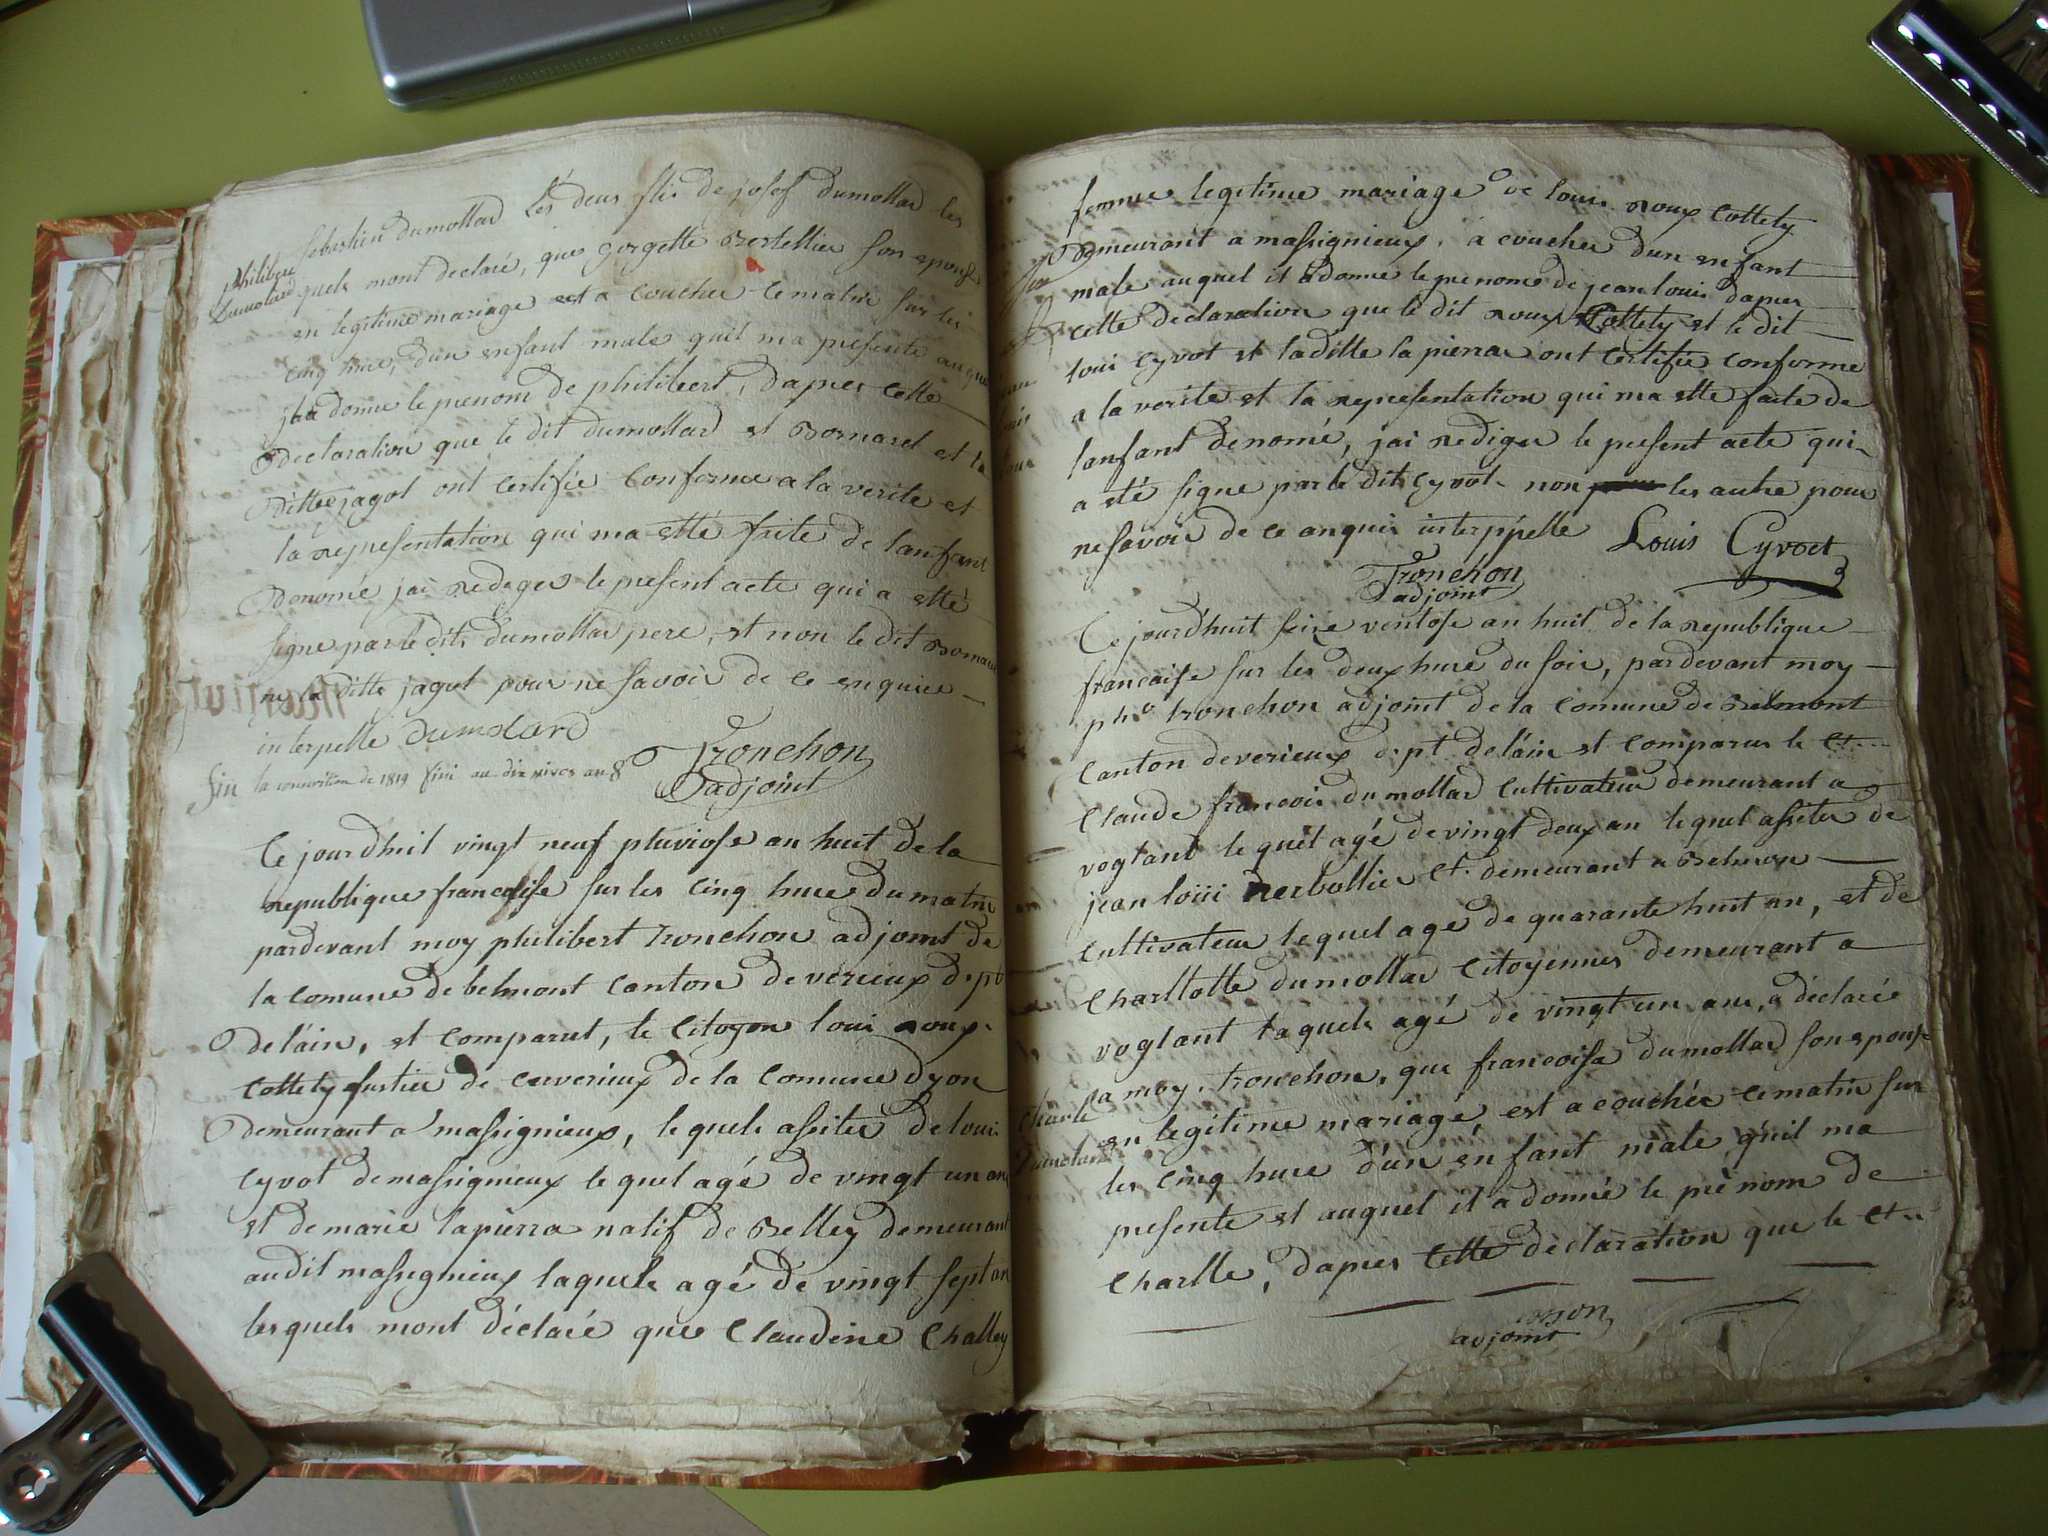 Sebastien dumollard Les deux fils de josef dumollard les
philibert
Dumolard
quels mont declaré, que gorgette Bertellier son epouse
en legitime mariage est a coucher ce matin sur les
cinq hure, d'un enfant male quil ma presenté auquel
jl a donne le prenom de philibert, dapres cette
declaration que le dit dumollard et Bornarel et la
ditte jagot ont certifie conforme a la verite et
la representation qui ma etté faite de lanfant
denomé jai rediger le present acte qui a etté
signe par le dit dumollar pere, et non le dit
ni la ditte jagot pour ne savoir de ce enquire
interpelle dumolard
Tronchon
adjoint
fin la conscrition de 1819 fini au dix nivos an 8
Ce jourdhuil vingt neuf pluviose an huit de la
republique francaise sur les cinq hure du matin
pardevant moy philibert tronchon adjoint de
la comune de belmont canton de verieux dpt
de láin, et comparut, le Citoyen loui roux
Cottety fustier de cerverieux de la comune dyon
demeurant a massignieux, le quels assiter de loui
cyvot de massignieux le quel agé de vingt un an
et de marie lapierra natif de Belley demeurant
audit massignieux laquele agé de vingt sept an
lesquels mont déclaré que Claudine Challey
femme legitime mariage de loui roux Cottety
demeurant a massignieux, a coucher dun enfant
male auquel il a donné le prenome de jean loui dapres
cette declaration que le dit roux Cottety et le dit
loui cyvot et laditte la pierra ont certifie conforme
a la verite et la representation qui ma ette faite de
lanfant denomé, jai rediger le present acte qui
a eté signe par le dit cyvot non les autre pour
ne savoir de ce anquis interppelle Louis Cyvoct
Tronchon
adjoint
Ce jourdhuit seize ventose an huit de la republique
francaise sur les deux hure du soir, pardevant moy
pht tronchon adjoint de la comune de Belmont
canton de verieux dpt de láin et comparus le Ct
Claude francois dumollard Cultivateur demeurant a
voglant le quel agé de vingt deux an lequel assiter de
jean louii Berbollier Ct demeurant a Belmon
cultivateur lequel age de quarante huit an, et de
Charllotte dumollar Citoyennes demeurant a
voglant laquele agé de vingt un ans, a déclaré
a moy tronchon, que francoise dumollard son epouse
Charle
Dumolard
en legitime mariage, est a couchée ce matin sur
les cinq hure d'un enfant male q'uil ma
presente et auquel il a donné le prénom de
Charlle, dapres cette declaration que le Ct
adjoint